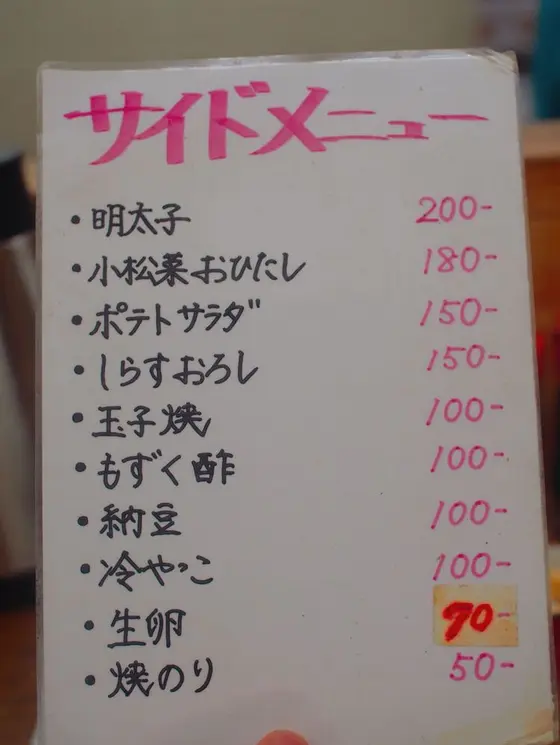 サイドメニュー
・明太子 200-
・小松菜おひたし 180-
・ポテトサラダ 150-
・しらすおろし 150-
・玉子焼 100-
・もずく酢 100-
・納豆 100-
・冷やっこ 100-
・生卵 70-
・焼のり 50-